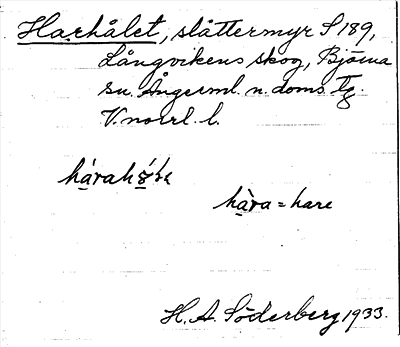 Harhålet, slåttermyr S 189,
Långvikens skog, Björna
sn. Ångerml. n. doms. Tg.
V.norrl. l.
hàra = hare
H. A. Söderberg 1933.